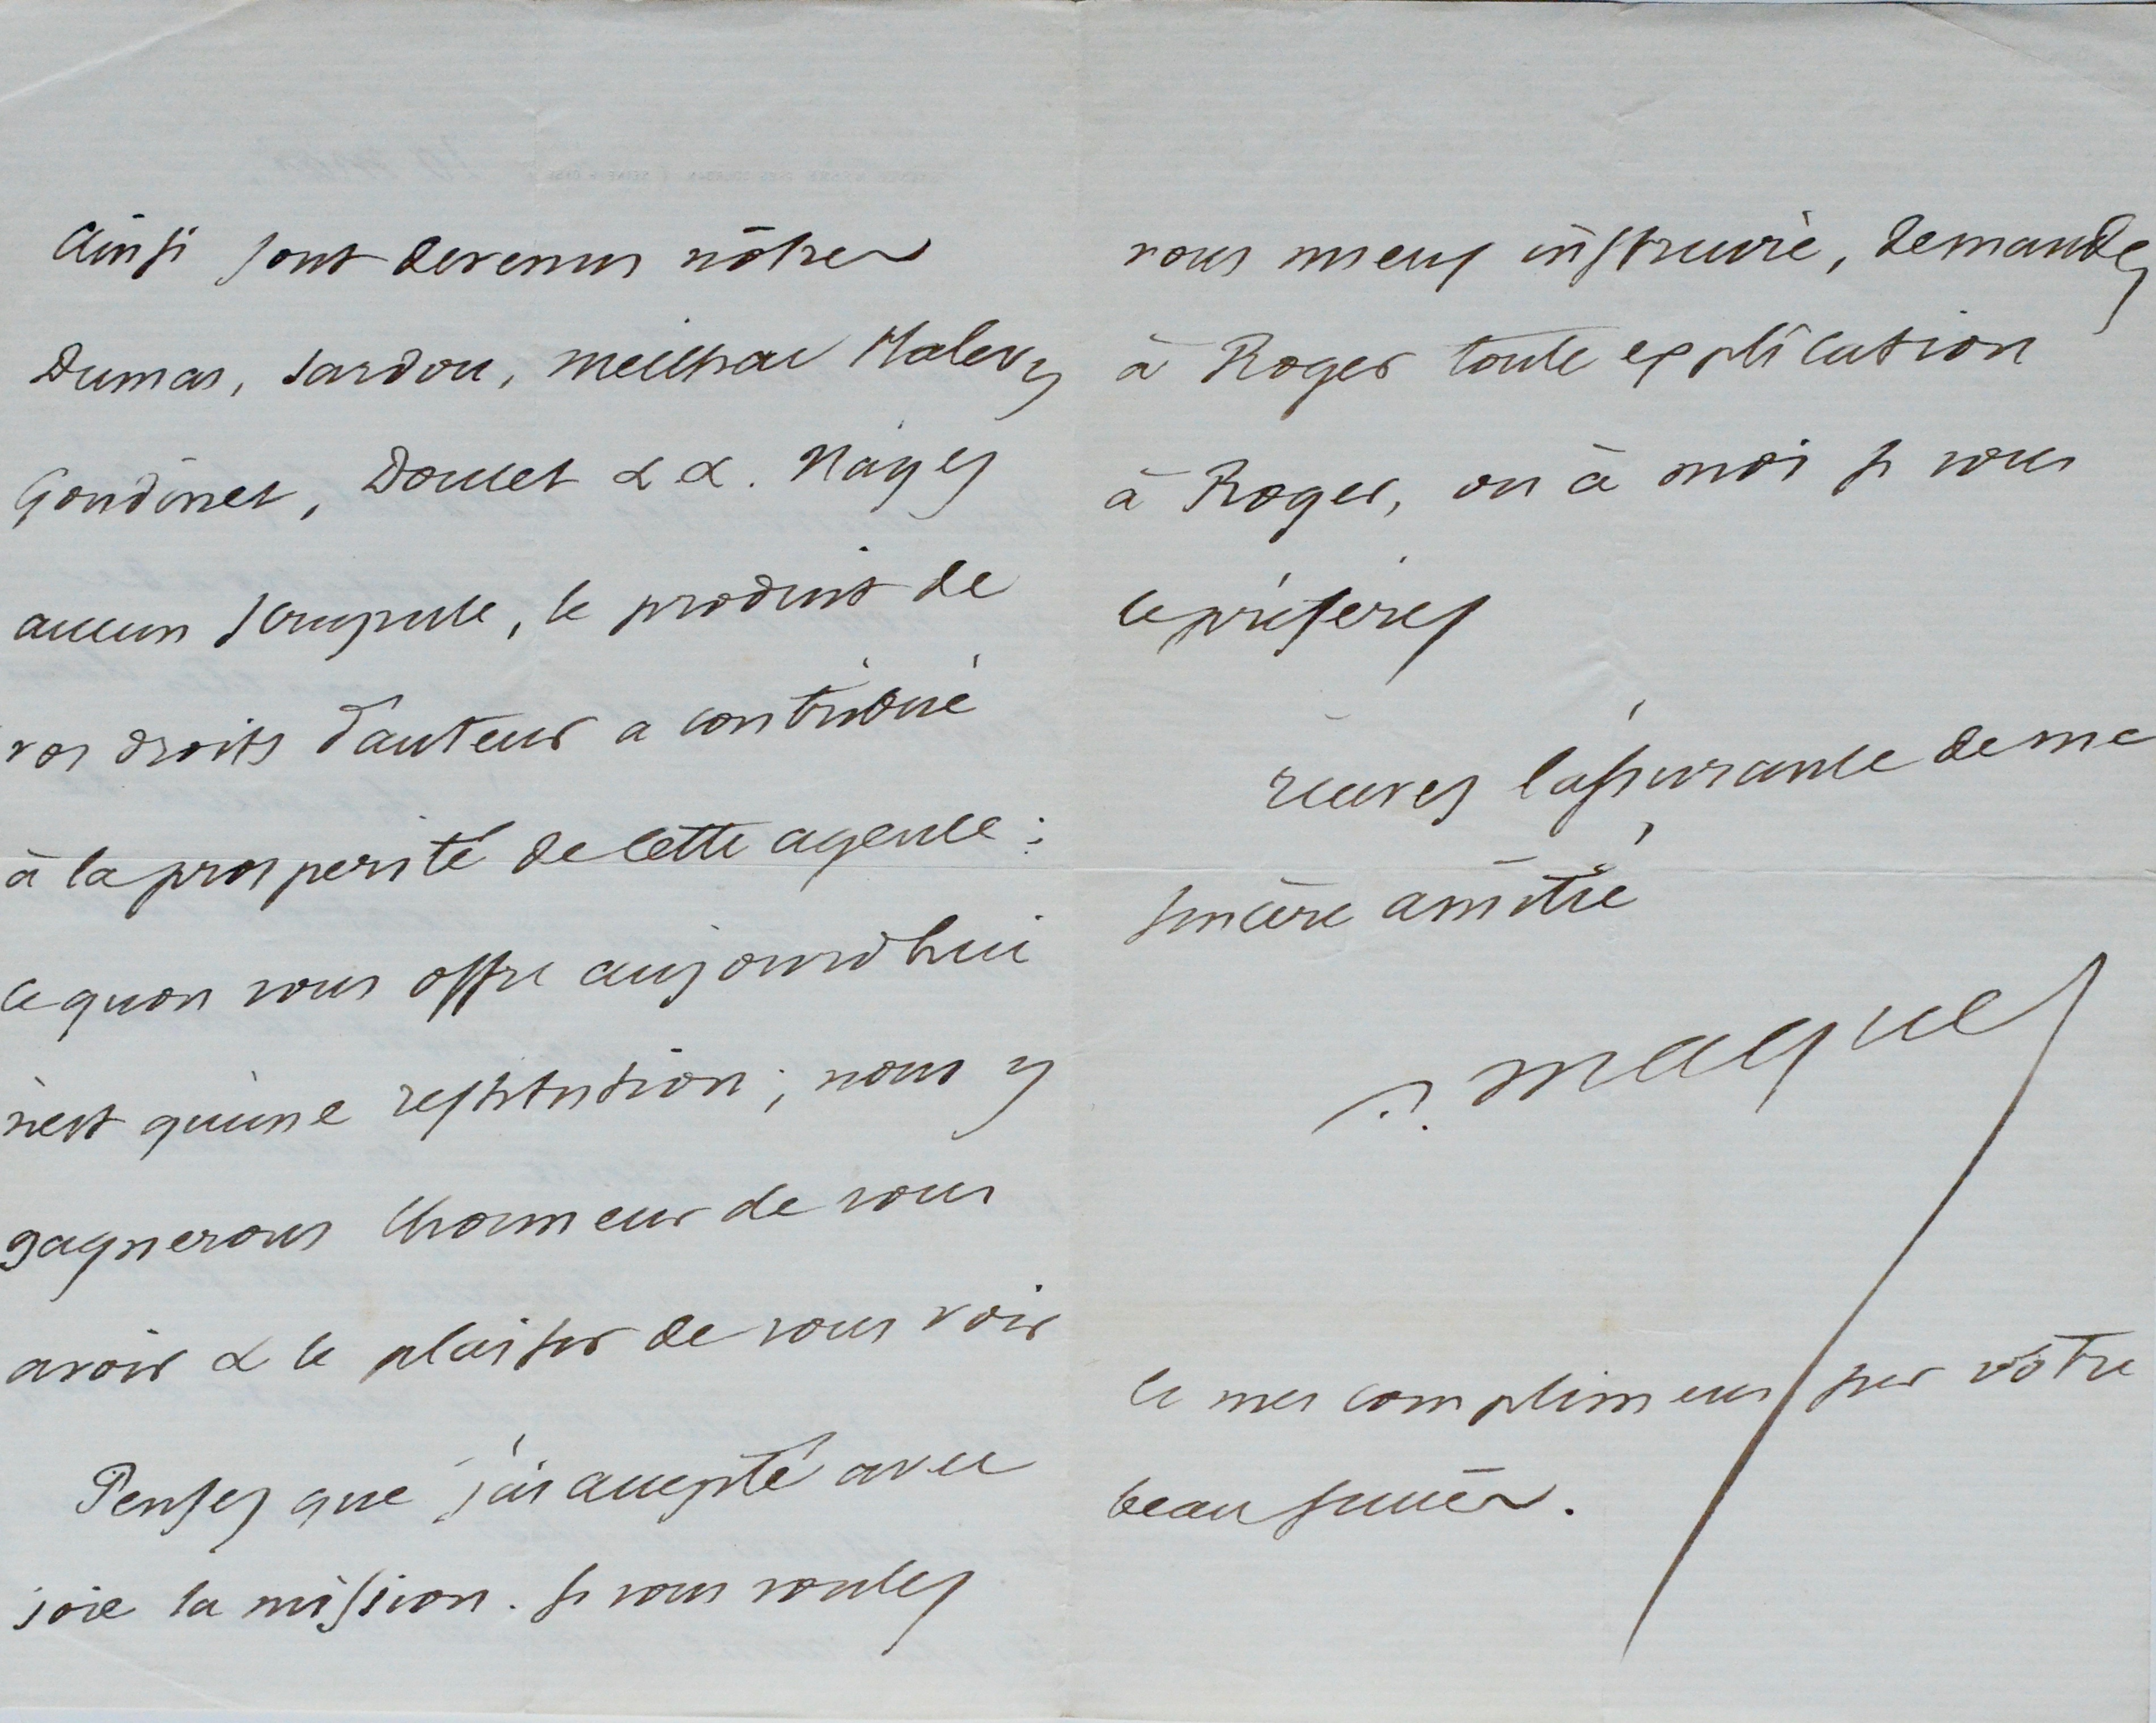 Ainsi sont devenus nôtres
Dumas, Sardou, Meilhac Halevy
Gondinet, Doucet & &. N'ayez
aucun scrupule, le produit de
vos droits d'auteur a contribué
à la prosperité de cette agence :
ce qu'on vous offre aujourd'hui
n'est qu'une restitution ; nous y
gagnerons l'honneur de vous
avoir & le plaisir de vous voir
Pensez que j'ai accepté avec
joie la mission. Si vous voulez
vous mieux instruire, demandez
à Roger toute explication
à Roger, ou à moi si vous
le préférez
recevez l'assurance de me
sincère amitié
A. Maquet
& mes complimens sur votre
beau succès.